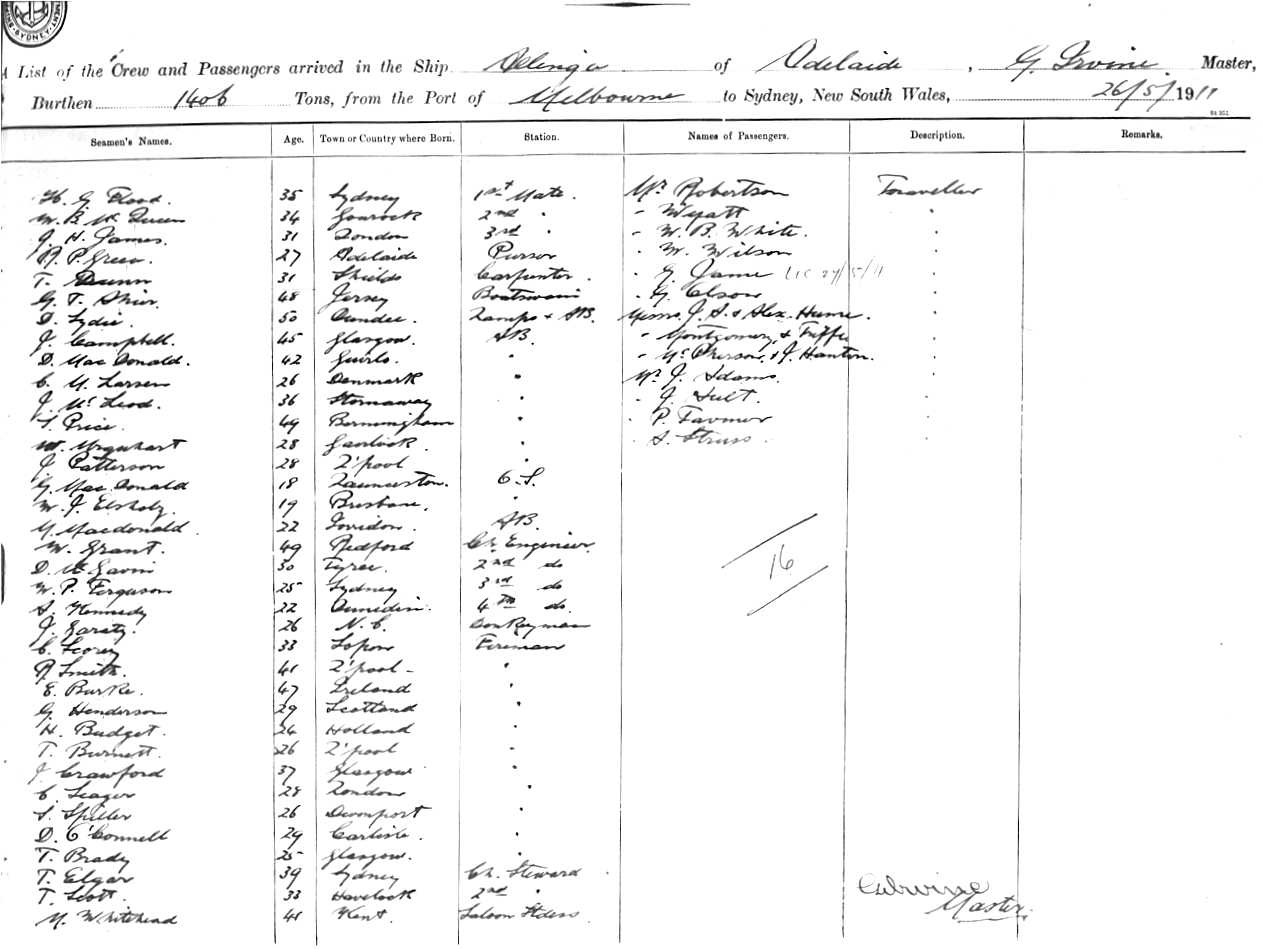 SYDNEY
A List of the Crew and Passengers arrived in the Ship Allinga of Adelaide, G. Irvine Master,
Burthen 1406 Tons, from the Port of Melbourne to Sydney, New South Wales, 26/5/1911
Seamen's Names. Age. Town or Country where Born. Station. Names of Passengers. Description. Remarks.
H. G. Flood. 35 Sydney 1st Mate. Mr Robertson Traveller
W. B. McQueen 34 Gourock 2nd " - Wyatt "
J. H. James. 31 London 3rd " - W. B. White. "
P. Green. 27 Adelaide Pursor - W. Wilson "
T. Dunn 31 Shields Carpenter. - G. Jame "
G. T. Shier. 48 Jersey Boatswain - G. Elson "
D. Lydie. 50 Dundee. Lamps & AB. Messrs. J. A. & Alex. Hume. "
J. Campbell. 45 Glasgow. AB. - Montgomery, & "
D. MacDonald. 42 " - McPherson, & J. Hanton. "
C. M. Larsen 26 Denmark " Mr J. Adams. "
J. McLeod. 36 Stornaway " - J. "
Price. 49 Bermingham " - P. "
W. Urquhart 28 Gairlock. " - S. Struss "
J. Patterson 28 L'pool "
G. MacDonald 18 Launceston. O.S.
W. J. 19 Brisbane. "
M. Macdonald 22 Torridon. AB.
W. Grant. 49 Redford Ch. Engineer.
D. McGavin 30 Tyree. 2nd do
W. P. Ferguson 25 Sydney 3rd do
A. Kennedy 22 Dunedin. 4th do.
J. Garaty. 26 N. C. Donkeyman
C. 33 Fireman
R. Smith. 41 L'pool - "
E. Burke. 47 Ireland "
G. Henderson 29 Scotland "
H. Budget. 24 Holland "
T. Burnett. 26 L'pool "
J Crawford 37 Glasgow "
C. Seager 28 London "
S. Spiller 26 Devonport "
D. O'Connell 29 Carlisle. "
T. Brady 25 Glasgow. "
T. Elgar 39 Sydney Ch. Steward
T. Scott. 33 Havelock 2nd "
M. Whitehead 41 Kent. Saloon
16
Irvine
Master.